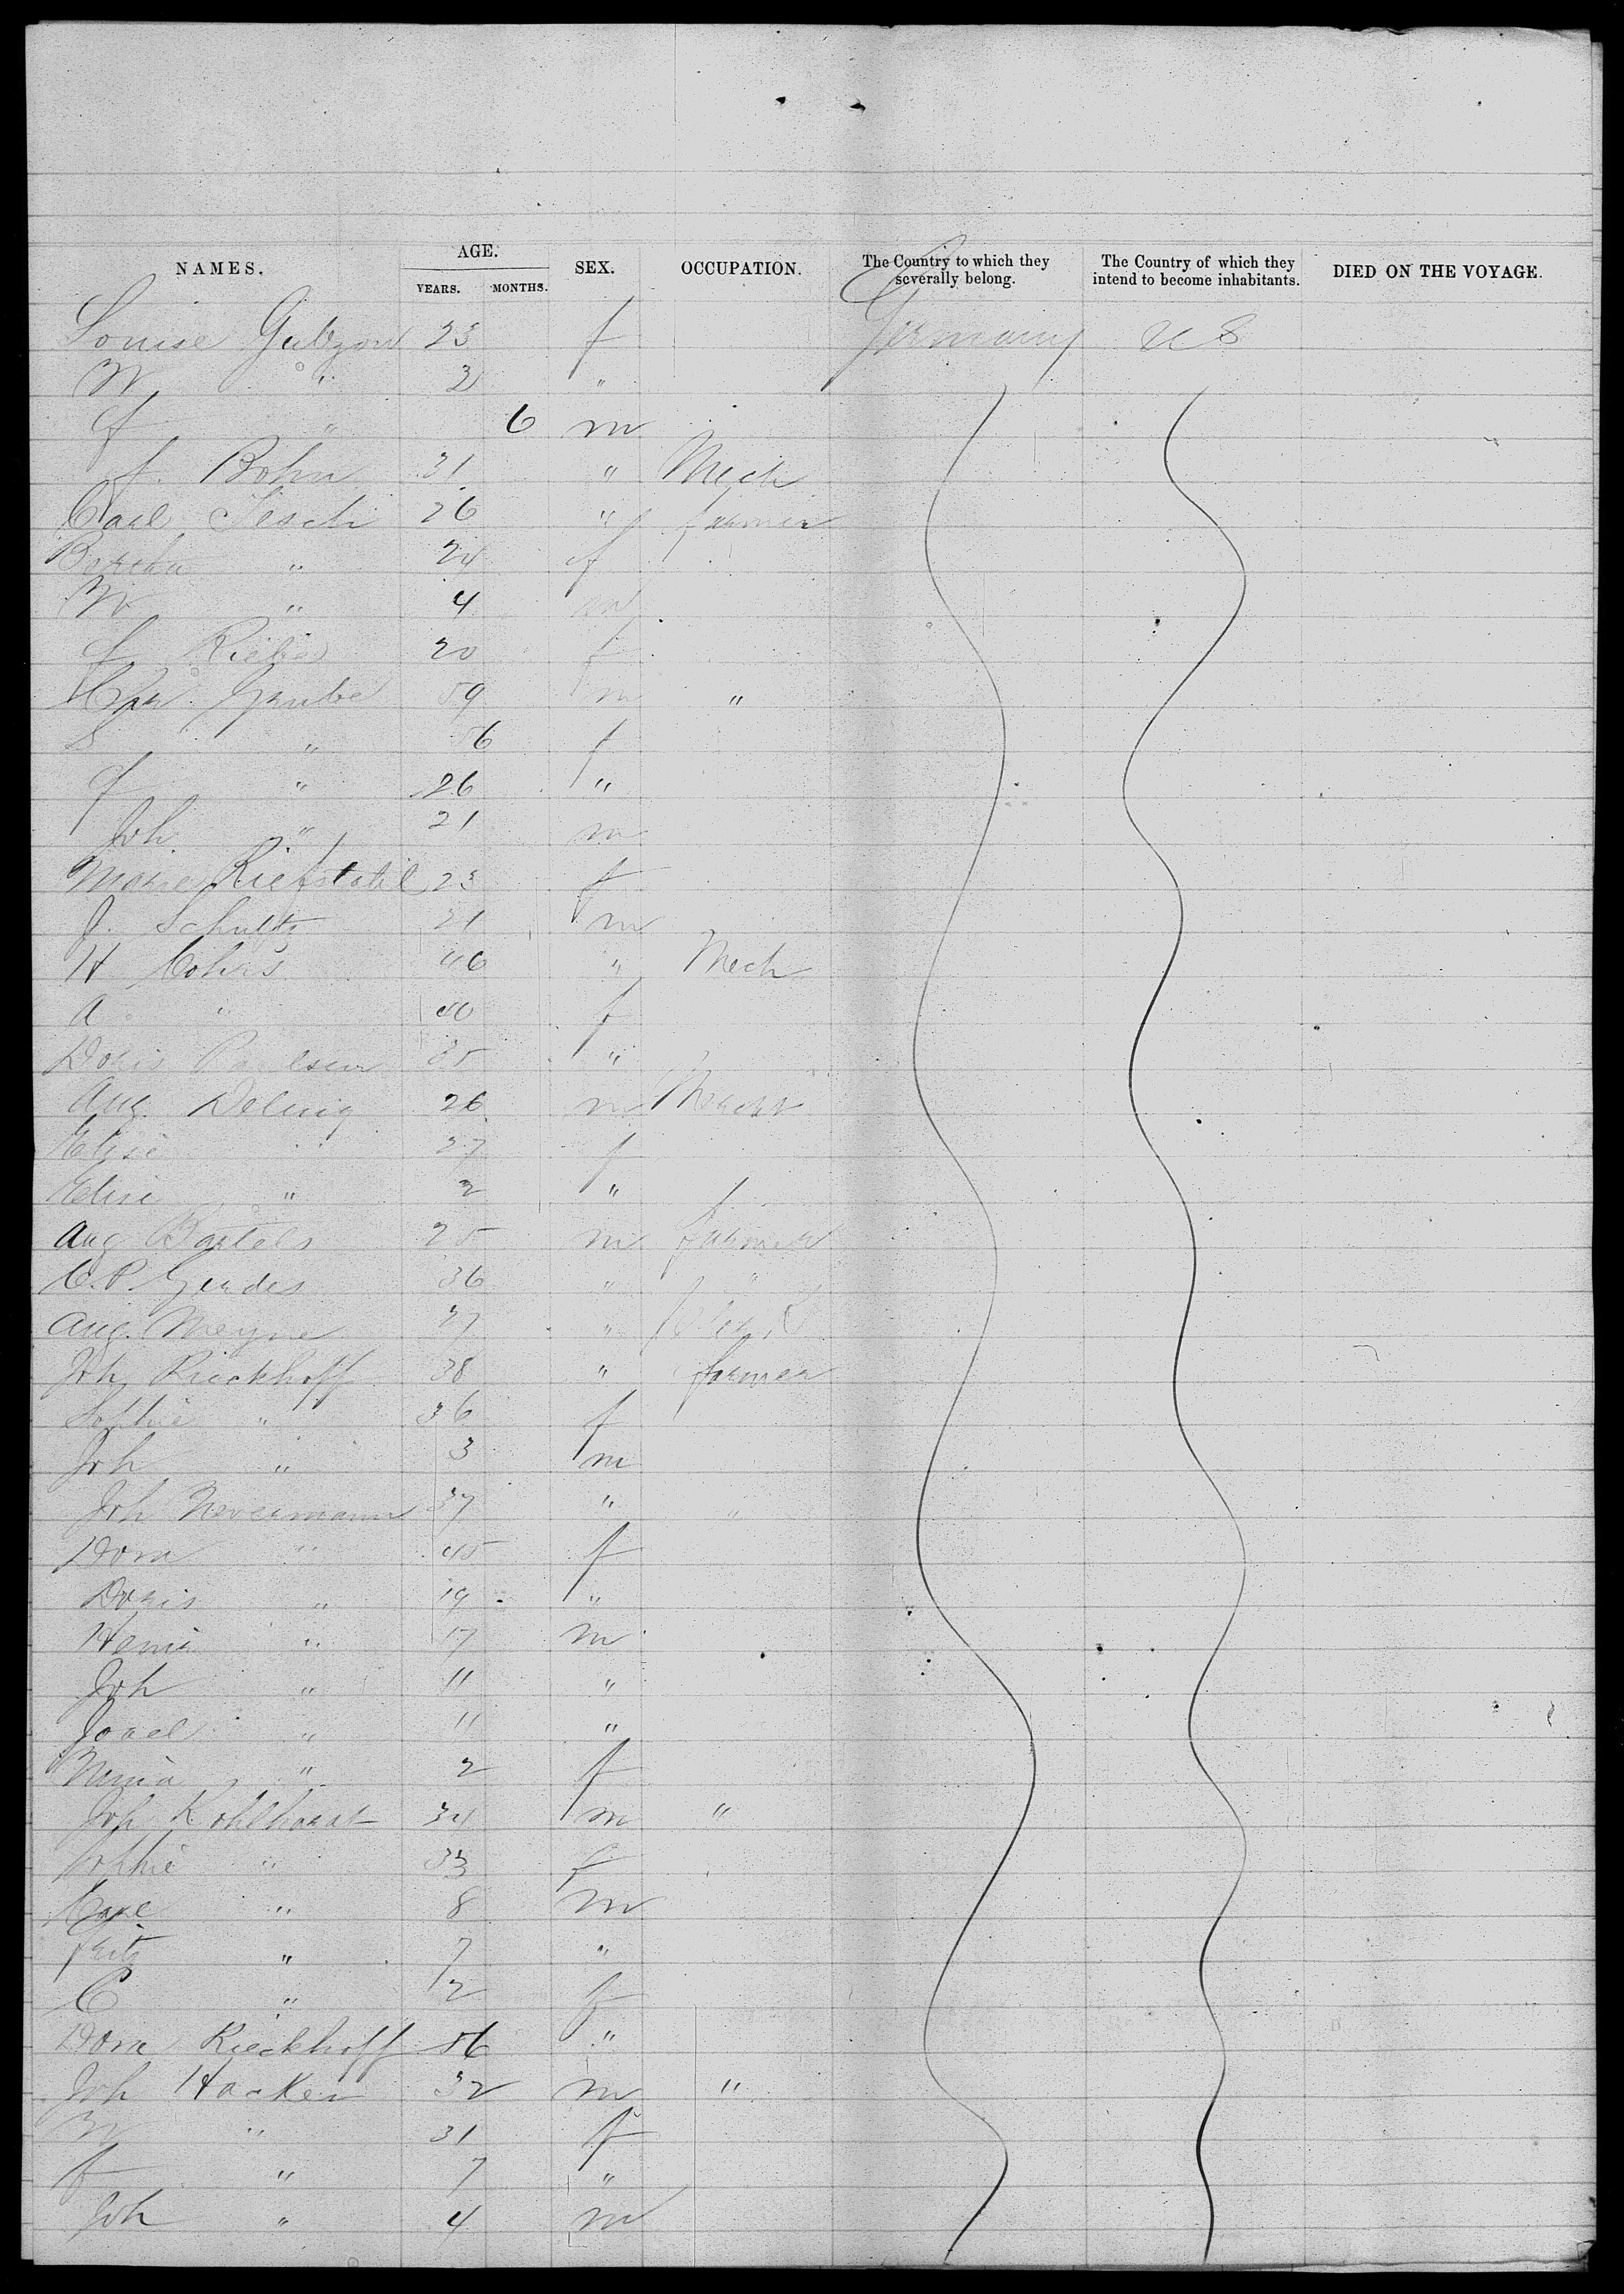 NAMES. AGE. YEARS. MONTHS. SEX. OCCUPATION. The Country to which they severally belong. The Country of which they intend to become inhabitants. DIED ON THE VOYAGE.
Louise Gutzow 23 f Germany U S
W " 2 "
f " 6 m
f. Bohn 31 " Mech
Carl Tesch 26 " farmer
Bertha " 24 f
W " 4 m
f 20 f
Chr. Grube 59 m "
S " 56 f
f " 26 "
Joh. " 21 m
Marie Riefstahl 23 f
J. Schultz 21 m
H Cohrs 46 " Mech
A " 40 f
Doris Paulsen 35 "
Aug. 26 m
Elise " 27 f
Elise " 2 "
Aug Bartels 25 m farmer
C. P. Gerdes 36 " "
Aug. Meyne 27 " Clerk
Joh Rieckhoff 38 " farmer
Sophie " 36 f
Joh " 3 m
Joh Nevermann 37 " "
Dora " 45 f
Doris " 19 "
" 17 m
Joh " 11 "
" 11 "
" 2 f
Joh Kohlhorst 34 m "
Sophie " 33 f
Carl " 8 m
Fritz " 7 "
C " 2 f
Dora Rieckhoff 56 "
Joh Hacker 32 m "
W " 31 f
f " 7 "
Joh " 4 m